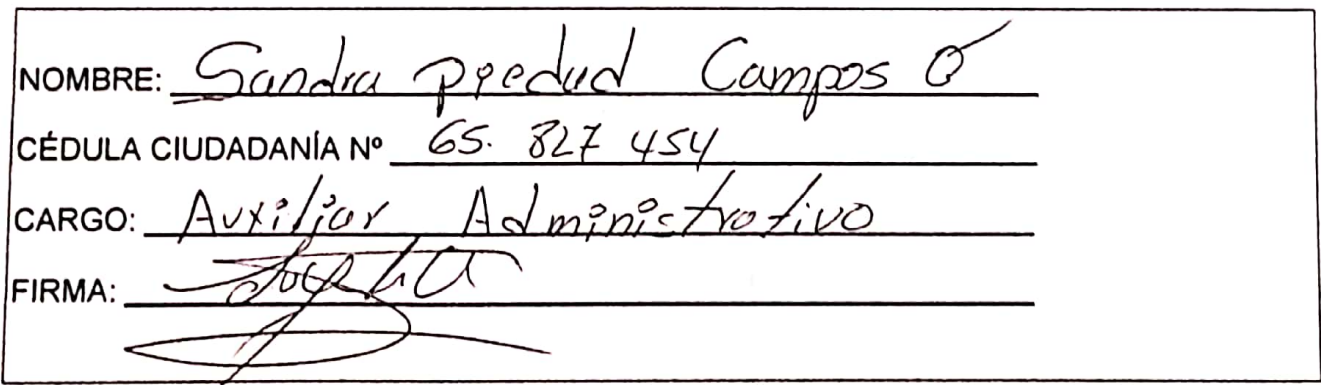 NOMBRE: Sandra Piedad Campos O
CÉDULA CIUDADANÍA Nº 65.827 454
CARGO: Auxiliar Administrativo
FIRMA: